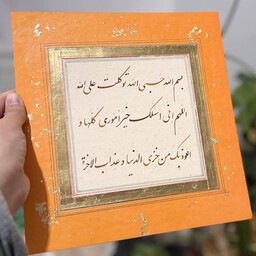 بسم الله حسبی الله توکلت علی الله
اللهم انی اسئلک خیر اموری کلها و
اعوذ بک من خزی الدنیا و عذاب الاخرة